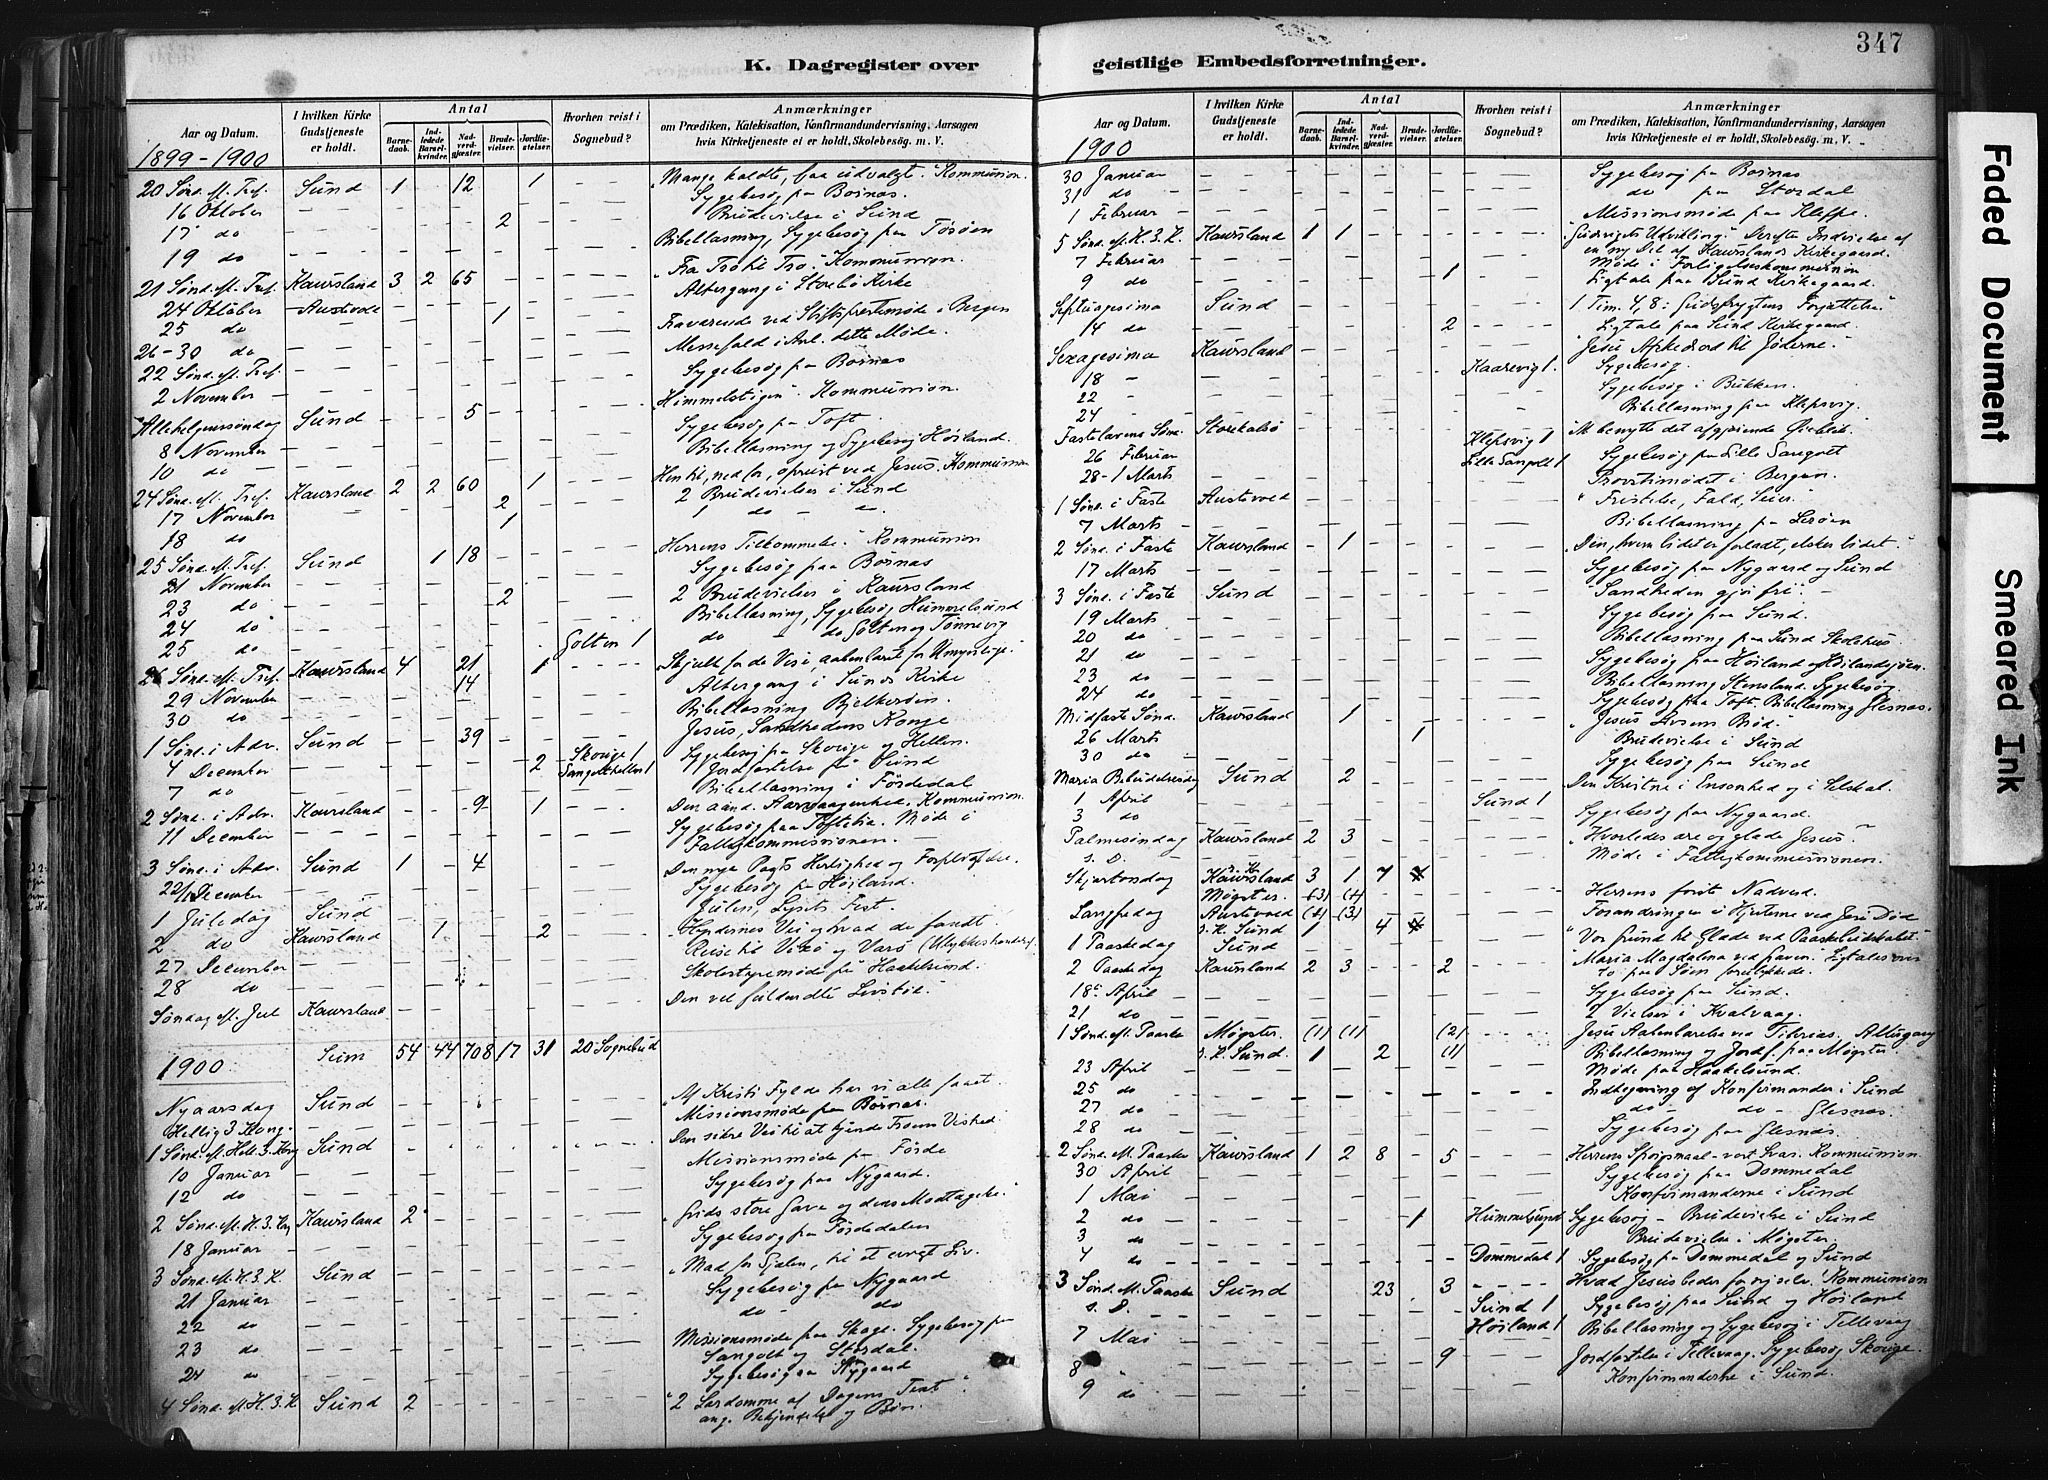 347
K. Dagregister over geistlige Embedsforretninger.
Aar og Datum.
I hvilken Kirke Gudstjeneste er holdt.
Antal
Barnedaab.
Indledede Barselkvinder.
Nadvergjæster.
Brudevielser.
Jordfæstelser.
Hvorhen reist i Sognebud?
Anmærkninger
om Prædiken, Katekisation, Konfirmandundervisning, Aarsagen
hvis Kirketjeneste ei er holdt, Skolebesøg. m. V.
1899-1900
20 Sønd. e. Tref. Sund 1 - 12 - 1 Mange kaldte, faa udvalgt. Kommunion.
16 Oktober Sygebesøg paa Bornæs
17 do 2 Brudevielse i Sund
19 do Bibellæsning, Sygebesøg paa Tøsøen
21 Sønd. e. Tref. Kaursland 3 2 65 "Fra Tro til Tro." Kommunion.
24 Oktober - Austevold Altergang i Storebø Kirke
25 do 1
26-30 do Fraværende ved Stiftspræstemøde i Bergen
22 Sønd. e. Tref. Messefald i Anl. dette Møde.
2 November Sygebesøg paa Bornæs
Allehelgensøndag Sund 5 "Himmelstigen" Kommunion.
8 November Sygebesøg paa Toft.
10 do Bibellæsning og Sygebesøg Høiland.
24 Sønd. e. Tref. Kaursland 2 2 60 - 1 Hen til, ned for, opreist ved Jesus. Kommunion
17 November 2 2 Brudevielser i Sund
18 do 1 1 do - do.
25 Sønd. e. Tref. Sund 1 18 Herrens Tilkommelse. Kommunion
21 November Sygebesøg paa Bornæs
23 do 2 2 Brudevielser i Kaursland
24 do Bibellæsning, Sygebesøg Hummelsund
25 do Golten 1 do - do Golten og Tønnevig
26 Sønd. e. Tref. Kaursland 4 21 1 Skjult for de Vise, aabenbaret for Umyndige.
29 November 14 Altergang i Sunds Kirke
30 do Bibellæsning Bjelkerøen.
1 Sønd. i Adv. Sund 39 Jesus, Sandhedens Konge
4 December Skoge 1 Sygebesøg paa Skoge og Hellen.
7 do 2 Sangolthellen 1 Jordfæstelse paa Sund
Bibellæsning i Førdedal
2 Sønd. i Adv. Kaursland 9 1 Kommunion.
11 December Sygebesøg paa Toftebia. Møde i
Fattigkommissionen.
3 Sønd. i Adv. Sund 1 - 4 Den nye Pagts Herlighed og
22/ December Sygebesøg paa Høiland.
1 Juledag Sund Julen, Lysets Fest.
2 do Kaursland 1 2 "Hyrdernes Vei og hvad de fandt."
27 December Reise til Vixø og Varø
28 do Skolestyremøde paa Haakelsund.
Søndag e. Jul Kaursland Den vel fuldendte Livstid.
1900 Sum 54 44 708 17 31 20 Sognebud
Nyaarsdag Sund "Af Kristi Fylde har vi alle faaet.
Hellig 3 Kong. Missionsmøde paa Bornæs.
1 Sønd. e. Hell. 3 Kong Sund
10 Januar Missionsmøde paa Førde
12 do Sygebesøg paa Nygaard.
2 Sønd. e. H. 3. K. Kaursland 2 "Guds store Gave og dens Modtagelse."
18 Januar Sygebesøg paa Førdedalen
3 Sønd. e. H. 3. K. Sund "Mad for Sjælen, til et evigt Liv.
21 Januar Sygebesøg paa Nygaard
22 do do - do
23 do Missionsmøde paa Skoge. Sygebesøg paa
Sangolt og Stordal.
24 do Sygebesøg paa Nygaard
4 Sønd. e. H. 3. K Sund 2 "2 Lærdomme af Dagens Text
ang. Bekjendelse og Bøn.
Aar og Datum.
I hvilken Kirke Gudstjeneste er holdt.
Antal
Barnedaab.
Indledede Barselkvinder.
Nadvergjæster.
Brudevielser.
Jordfæstelser.
Hvorhen reist i Sognebud?
Anmærkninger
om Prædiken, Katekisation, Konfirmandundervisning, Aarsagen
hvis Kirketjeneste ei er holdt, Skolebesøg. m. V.
1900
30 Januar Sygebesøg paa Bornæs
31 do do paa Stordal
1 Februar Missionsmøde paa Kleppe.
5 Sønd. e. H. 3. K. Kaursland 1 1 "Gudsrigets Udvikling" Derefter Indvielse af
en ny Del af Kaurslands Kirkegaard.
7 Februar Møde i Forligelseskommissionen
9 do 1 Ligtale paa Sund Kirkegaard.
Septuagesima Sund 1 Tim. 4,8: Gudsfrygtens Forjættelse."
14 do 2 Ligtale paa Sund Kirkegaard.
Sexagesima Kaursland "Jesu Afskedsord til Jøderne."
18 - Kaarevig 1. Sygebesøg.
22 - Sygebesøg i Bukken.
24 - Bibellæsning paa Klepsvig.
Fastelavens Sønd. Storekalsø "At benytte det afgjørende Øieblik.
26 Februar Klepsvig 1
Lille Sangolt 1 Sygebesøg paa Lille Sangolt
28-1 Marts Provstimødet i Bergen.
1 Sønd. i Faste Austevold "Fristelse, Fald, Seier."
7 Marts Bibellæsning paa Lerøen
2 Sønd. i Faste Kaursland - 1 "Den, hvem lidet er forladt, elsker lidet."
17 Marts Sygebesøg paa Nygaard og Sund
3 Sønd. i Faste Sund Sandheden gjør fri.
19 Marts Sygebesøg paa Sund.
20 do Bibellæsning paa Sund Skolehus.
21 do Sygebesøg paa Høiland og Høilandsjøen.
23 do Bibellæsning Stensland. Sygebesøg
24 do Sygebesøg fra Toft. Bibellæsning Glesnæs.
Midfaste Sønd. Kaursland 1 "Jesus Livsens Brød."
26 Marts 1 Brudevielse i Sund
30 do Sygebesøg paa Sund
Maria Bebudelsesdag Sund 2 Den Kristne i Ensomhed og i Selskab.
1 April Sund 1
3 do Sygebesøg paa Nygaard.
Palmesøndag Kaursland 2 3 "Hvorledes ære og glæde Jesus"
s. D. Møde i Fattigkommissionen.
Skjærtorsdag Kaursland 3 1 7
Møgster (3) (4) Herrens første Nadverd.
Langfredag Austevold (4) (3) Forandringer i Hjerterne ved Jesu Død
s. K. Sund 1 4
1 Paaskedag Sund "Vor Grund til Glæde ved Paaskebudskabet."
2 Paaskedag Kaursland 2 3 2 Maria Magdalena ved Graven. Ligtaler over
to paa Søen forulykkede.
18 April Sygebesøg paa Sund.
21 do 2 Vielser i Kvalvaag.
1 Sønd. e. Paaske Møgster (1) (1) (2) Jesu Aabenbarelse ved Tiberias. Altergang
s. K. Sund. 1 2 (1) Bibellæsning og Jordf. paa Møgster.
23 April Møde paa Haakelsund.
25 do Indtegning af Konfirmander i Sund
27 do do - do - Glesnæs.
28 do Sygebesøg paa Glesnæs.
2 Sønd. e. Paaske Kaursland 1 2 8 - 5 Herrens Spørgsmaal - vort Svar. Kommunion
30 April Sygebesøg paa Dommedal
1 Mai Konfirmanderne i Sund
2 do 1 Hummelsund Sygebesøg - Brudevielse i Sund
3 do Brudevielse i Møgster
4 do Dommedal 1 Sygebesøg paa Dommedal og Sund
3 Sønd. e. Paaske Sund 23 3 Hvad Jesus beder for sig selv. Kommunion
s. D. Sund 1 Sygebesøg paa Sund og Høiland
7 Mai Høiland 1 Bibellæsning og Sygebesøg i Tellevaag
8 " 9 Jordfæstelse i Tellevaag. Sygebesøg Skoge.
9 do Konfirmanderne i Sund.
Faded Document
Smeared Ink